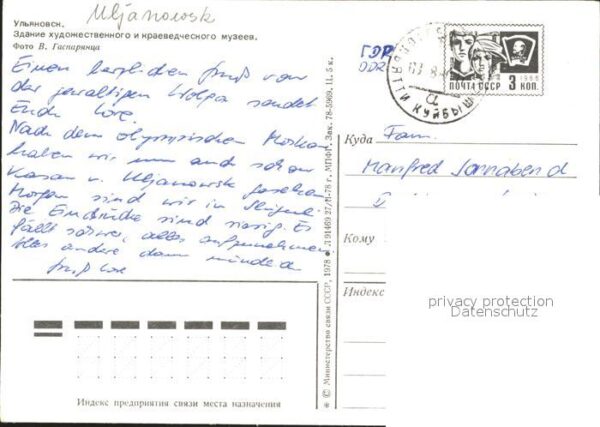 Uljanowsk
Ульяновск.
Здание художественного и краеведческого музеев.
Фото В. Гаспарянца
Einen herzlichen Gruß von
der gewaltigen Wolga sendet
Euch Lore.
Nach dem olympischen Moskau
haben wir nun auch schon
Kasan u. Uljanowsk gesehen.
Morgen sind wir in
Die Eindrücke sind riesig. Es
fällt schwer, alles aufzunehmen
Alles andere dann mündlich
Gruß Lore
Индекс предприятия связи места назначения
© Министерство связи СССР, 1978 Л 91469 27/II-78 г. МПФГ. Зак. 78-5969, П, 5 к.
ГДР
DDR
ТОЛЬЯТТИ КУЙБЫШ
a
ПОЧТА СССР 3 КОП.
1966
Куда
Fam.
Manfred Sonnabend
Кому
Индекс
privacy protection
Datenschutz